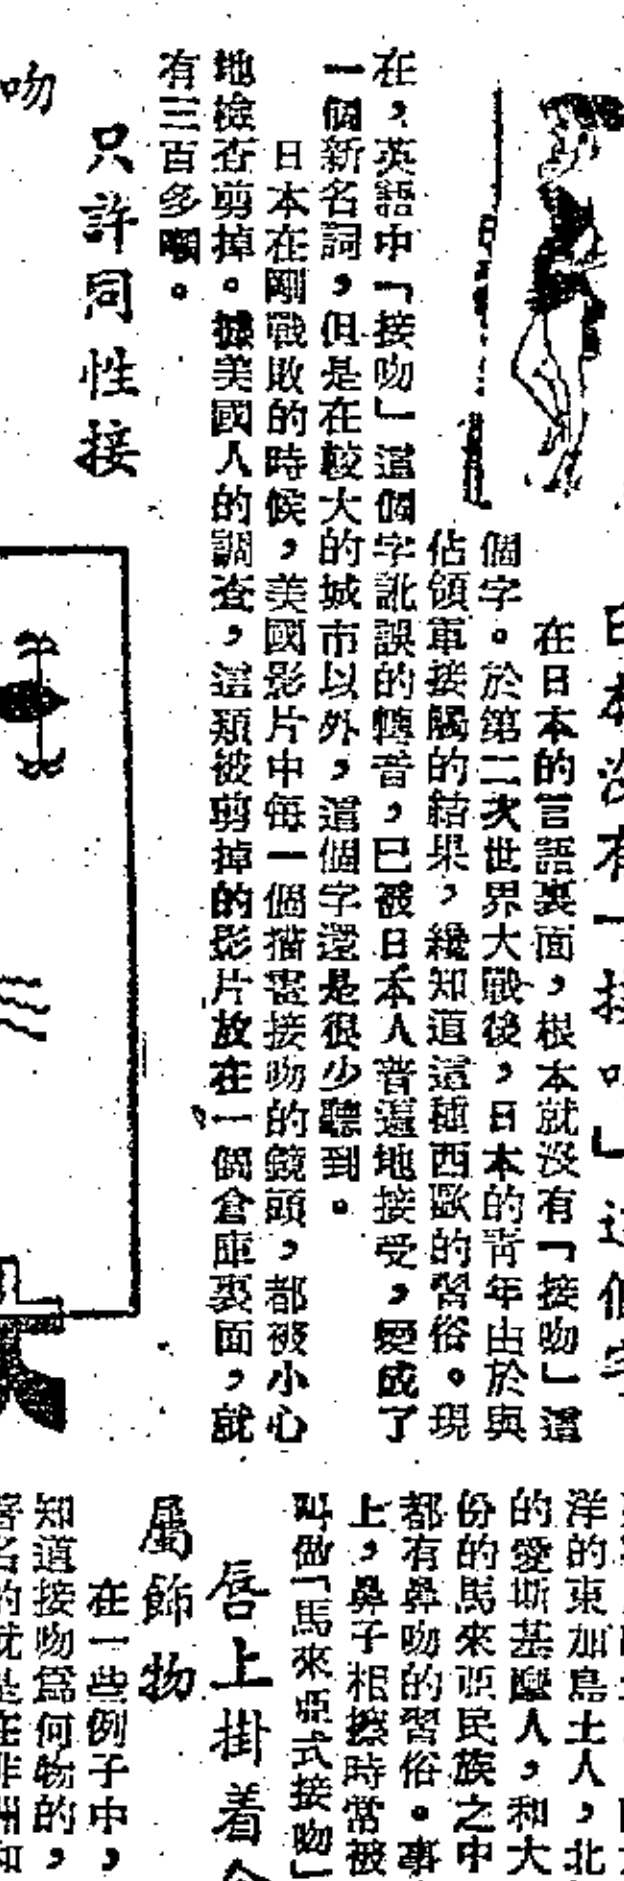 日本沒有「接吻」這個字
在日本的言語裏面，根本就沒有「接吻」這
個字。於第二次世界大戰後，日本的靑年由於與
佔領軍接觸的結果，纔知道這種西歐的習俗。現
在，英語中「接吻」這個字訛誤的轉音，已被日本人普遍地接受，變成了
一個新名詞，但是在較大的城市以外，這個字還是很少聽到。
日本在剛戰敗的時候，美國影片中每一個描寫接吻的鏡頭，都被小心
地檢查剪掉。據美國人的調查，這類被剪掉的影片放在一個倉庫裏面，就
有三百多噸。
只許同性接
吻
洋的東加島土人，北
的愛斯基摩人，和大
份的馬來亞民族之中
都有鼻吻的習俗。事
上，鼻子相擦時常被
叫做「馬來亞式接吻」
唇上掛着
屬飾物
在一些例子中，
知道接吻爲何物的，
著名的就是在非洲和